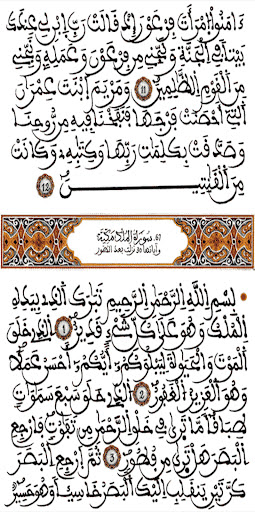 ءَامَنُوا اِمْرَأَتَ فِرْعَوْنَ إِذْ قَالَتْ رَبِّ اِبْنِ لِي عِندَكَ
بَيْتاً فِي الْجَنَّةِ وَنَجِّنِي مِن فِرْعَوْنَ وَعَمَلِهِ وَنَجِّنِي
مِنَ الْقَوْمِ الظَّٰلِمِينَ 11 وَمَرْيَمَ اَبْنَتَ عِمْرَٰنَ
اَلتِي أَحْصَنَتْ فَرْجَهَا فَنَفَخْنَا فِيهِ مِن رُّوحِنَا
وَصَدَّقَتْ بِكَلِمَٰتِ رَبِّهَا وَكِتَٰبِهِ وَكَانَتْ
مِنَ الْقَٰنِتِينَ 12
67 سورة الملك مكية
وآياتها 30 نزلت بعد الطور
بِسْمِ اللَّهِ الرَّحْمَٰنِ الرَّحِيمِ تَبَٰرَكَ الذِي بِيَدِهِ
الْمُلْكُ وَهُوَ عَلَىٰ كُلِّ شَيْءٍ قَدِيرٌ 1 الذِي خَلَقَ
الْمَوْتَ وَالْحَيَوٰةَ لِيَبْلُوَكُمْ أَيُّكُمْ أَحْسَنُ عَمَلاً
وَهُوَ الْعَزِيزُ الْغَفُورُ 2 الذِي خَلَقَ سَبْعَ سَمَٰوَٰتٍ
طِبَاقاً مَّا تَرَىٰ فِي خَلْقِ الرَّحْمَٰنِ مِن تَفَٰوُتٍ فَارْجِعِ
الْبَصَرَ هَلْ تَرَىٰ مِن فُطُورٍ 3 ثُمَّ ارْجِعِ الْبَصَرَ
كَرَّتَيْنِ يَنقَلِبِ اِلَيْكَ الْبَصَرُ خَاسِئاً وَهُوَ حَسِيرٌ